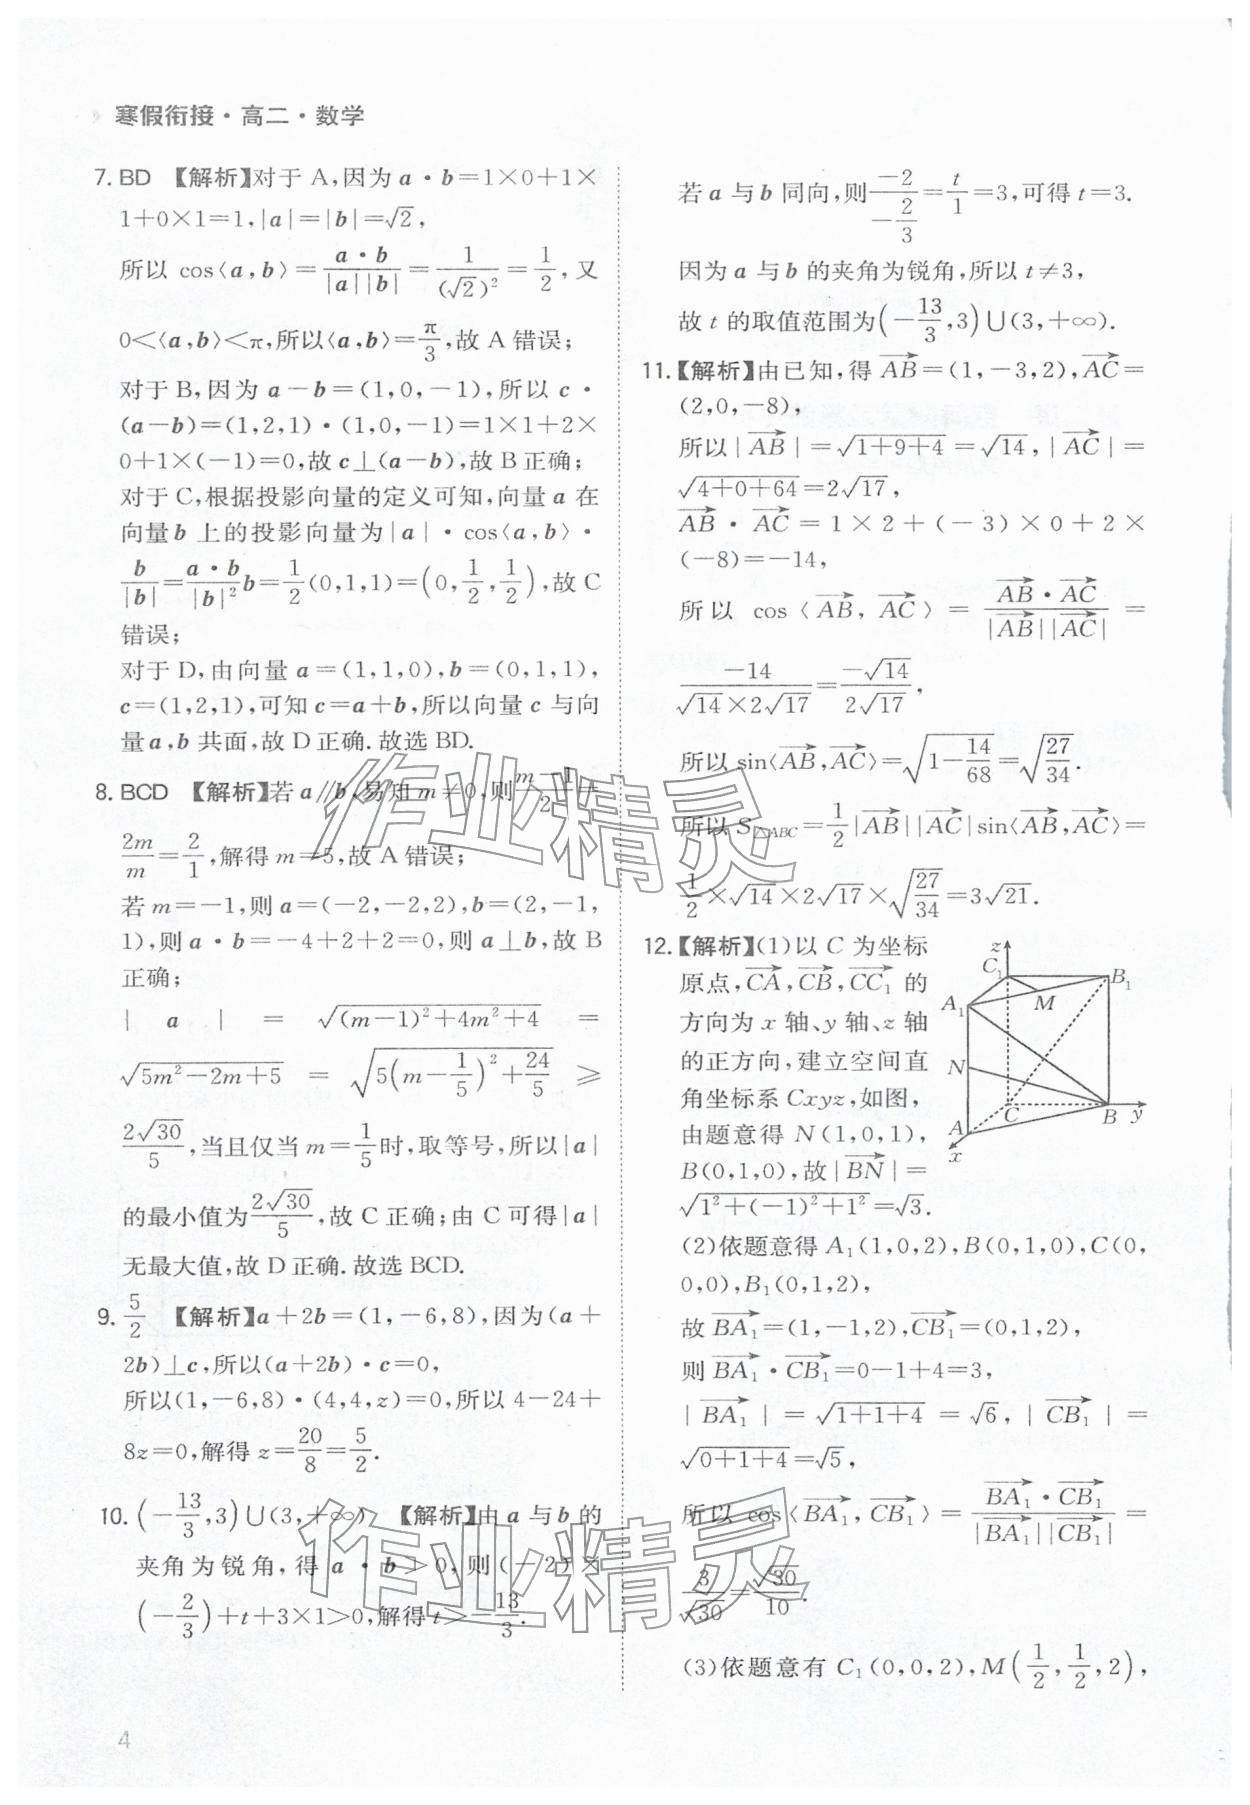 寒假衔接·高二·数学
7. BD 【解析】对于 A,因为 a·b=1×0+1×
1+0×1=1,|a|=|b|=√2,
所以 cos⟨a,b⟩=a·b/(|a||b|)=1/(√2)²=1/2,又
0<⟨a,b⟩<π,所以⟨a,b⟩=π/3,故 A 错误;
对于 B,因为 a-b=(1,0,-1),所以 c·
(a-b)=(1,2,1)·(1,0,-1)=1×1+2×
0+1×(-1)=0,故 c⊥(a-b),故 B 正确;
对于 C,根据投影向量的定义可知,向量 a 在
向量 b 上的投影向量为|a|·cos⟨a,b⟩·
b/|b|=a·b/|b|² b=1/2(0,1,1)=(0,1/2,1/2),故 C
错误;
对于 D,由向量 a=(1,1,0),b=(0,1,1),
c=(1,2,1),可知 c=a+b,所以向量 c 与向
量 a,b 共面,故 D 正确.故选 BD.
8. BCD 【解析】若 a∥b,易知 m≠0,则(m-1)/2=
2m/m=2/1,解得 m=5,故 A 错误;
若 m=-1,则 a=(-2,-2,2),b=(2,-1,
1),则 a·b=-4+2+2=0,则 a⊥b,故 B
正确;
|a|=√((m-1)²+4m²+4)=
√(5m²-2m+5)=√(5(m-1/5)²+24/5)≥
2√30/5,当且仅当 m=1/5时,取等号,所以|a|
的最小值为2√30/5,故 C 正确;由 C 可得|a|
无最大值,故 D 正确.故选 BCD.
9. 5/2 【解析】a+2b=(1,-6,8),因为(a+
2b)⊥c,所以(a+2b)·c=0,
所以(1,-6,8)·(4,4,z)=0,所以 4-24+
8z=0,解得 z=20/8=5/2.
10. (-13/3,3)∪(3,+∞) 【解析】由 a 与 b 的
夹角为锐角,得 a·b>0,则(-2)×
(-2/3)+t+3×1>0,解得 t>-13/3.
若 a 与 b 同向,则-2/(-2/3)=t/1=3,可得 t=3.
因为 a 与 b 的夹角为锐角,所以 t≠3,
故 t 的取值范围为(-13/3,3)∪(3,+∞).
11.【解析】由已知,得 AB=(1,-3,2),AC=
(2,0,-8),
所以|AB|=√(1+9+4)=√14,|AC|=
√(4+0+64)=2√17,
AB·AC=1×2+(-3)×0+2×
(-8)=-14,
所以 cos⟨AB,AC⟩=AB·AC/(|AB||AC|)=
-14/(√14×2√17)=-√14/(2√17),
所以 sin⟨AB,AC⟩=√(1-14/68)=√(27/34).
所以 S△ABC=1/2|AB||AC|sin⟨AB,AC⟩=
1/2×√14×2√17×√(27/34)=3√21.
12.【解析】(1)以 C 为坐标
原点,CA,CB,CC₁ 的
方向为 x 轴、y 轴、z 轴
的正方向,建立空间直
角坐标系 Cxyz,如图,
由题意得 N(1,0,1),
B(0,1,0),故|BN|=
√(1²+(-1)²+1²)=√3.
z
C₁
B₁
A₁
M
N
C
B
y
A
x
(2)依题意得 A₁(1,0,2),B(0,1,0),C(0,
0,0),B₁(0,1,2),
故 BA₁=(1,-1,2),CB₁=(0,1,2),
则 BA₁·CB₁=0-1+4=3,
|BA₁|=√(1+1+4)=√6,|CB₁|=
√(0+1+4)=√5,
所以 cos⟨BA₁,CB₁⟩=BA₁·CB₁/(|BA₁||CB₁|)=
3/√30=√30/10.
(3)依题意有 C₁(0,0,2),M(1/2,1/2,2),
作业精灵
作业精灵
4